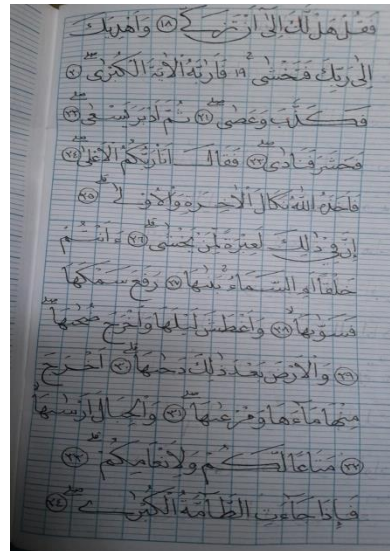 فَقُلْ هَلْ لَكَ إِلَىٰ أَنْ تَزَكَّىٰ ١٨ وَأَهْدِيَكَ
إِلَىٰ رَبِّكَ فَتَخْشَىٰ ١٩ فَأَرَاهُ الْآيَةَ الْكُبْرَىٰ ٢٠
فَكَذَّبَ وَعَصَىٰ ٢١ ثُمَّ أَدْبَرَ يَسْعَىٰ ٢٢
فَحَشَرَ فَنَادَىٰ ٢٣ فَقَالَ أَنَا رَبُّكُمُ الْأَعْلَىٰ ٢٤
فَأَخَذَهُ اللَّهُ نَكَالَ الْآخِرَةِ وَالْأُولَىٰ ٢٥
إِنَّ فِي ذَٰلِكَ لَعِبْرَةً لِمَنْ يَخْشَىٰ ٢٦ ءَأَنْتُمْ
خَلْقًا أَمِ السَّمَاءُ بَنَاهَا ٢٧ رَفَعَ سَمْكَهَا
فَسَوَّاهَا ٢٨ وَأَغْطَشَ لَيْلَهَا وَأَخْرَجَ ضُحَاهَا
٢٩ وَالْأَرْضَ بَعْدَ ذَٰلِكَ دَحَاهَا ٣٠ أَخْرَجَ
مِنْهَا مَاءَهَا وَمَرْعَاهَا ٣١ وَالْجِبَالَ أَرْسَاهَا
٣٢ مَتَاعًا لَكُمْ وَلِأَنْعَامِكُمْ ٣٣
فَإِذَا جَاءَتِ الطَّامَّةُ الْكُبْرَىٰ ٣٤